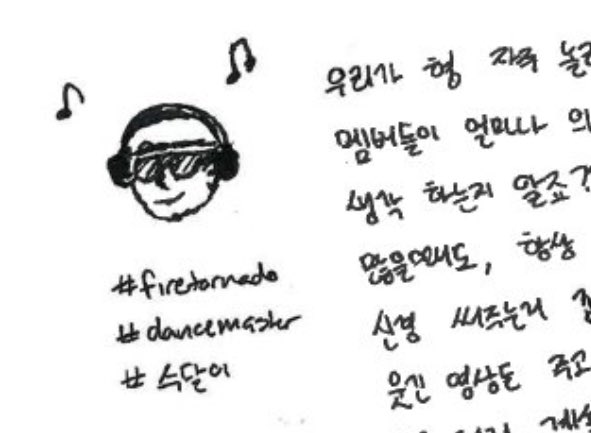 우리가 형 자주 놀
멤버들이 얼마나 의
생각 하는지 알죠?
많을때도, 항상
신경 써주는거
웃긴 영상도 주고
#firetornado
#dancemaster
#수달이